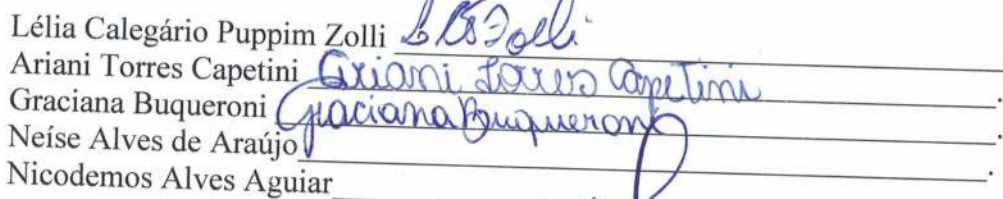 Lélia Calegário Puppim Zolli Zolli
Ariani Torres Capetini Ariani Torres Capetini.
Graciana Buqueroni Graciana Buqueroni.
Neíse Alves de Araújo.
Nicodemos Alves Aguiar